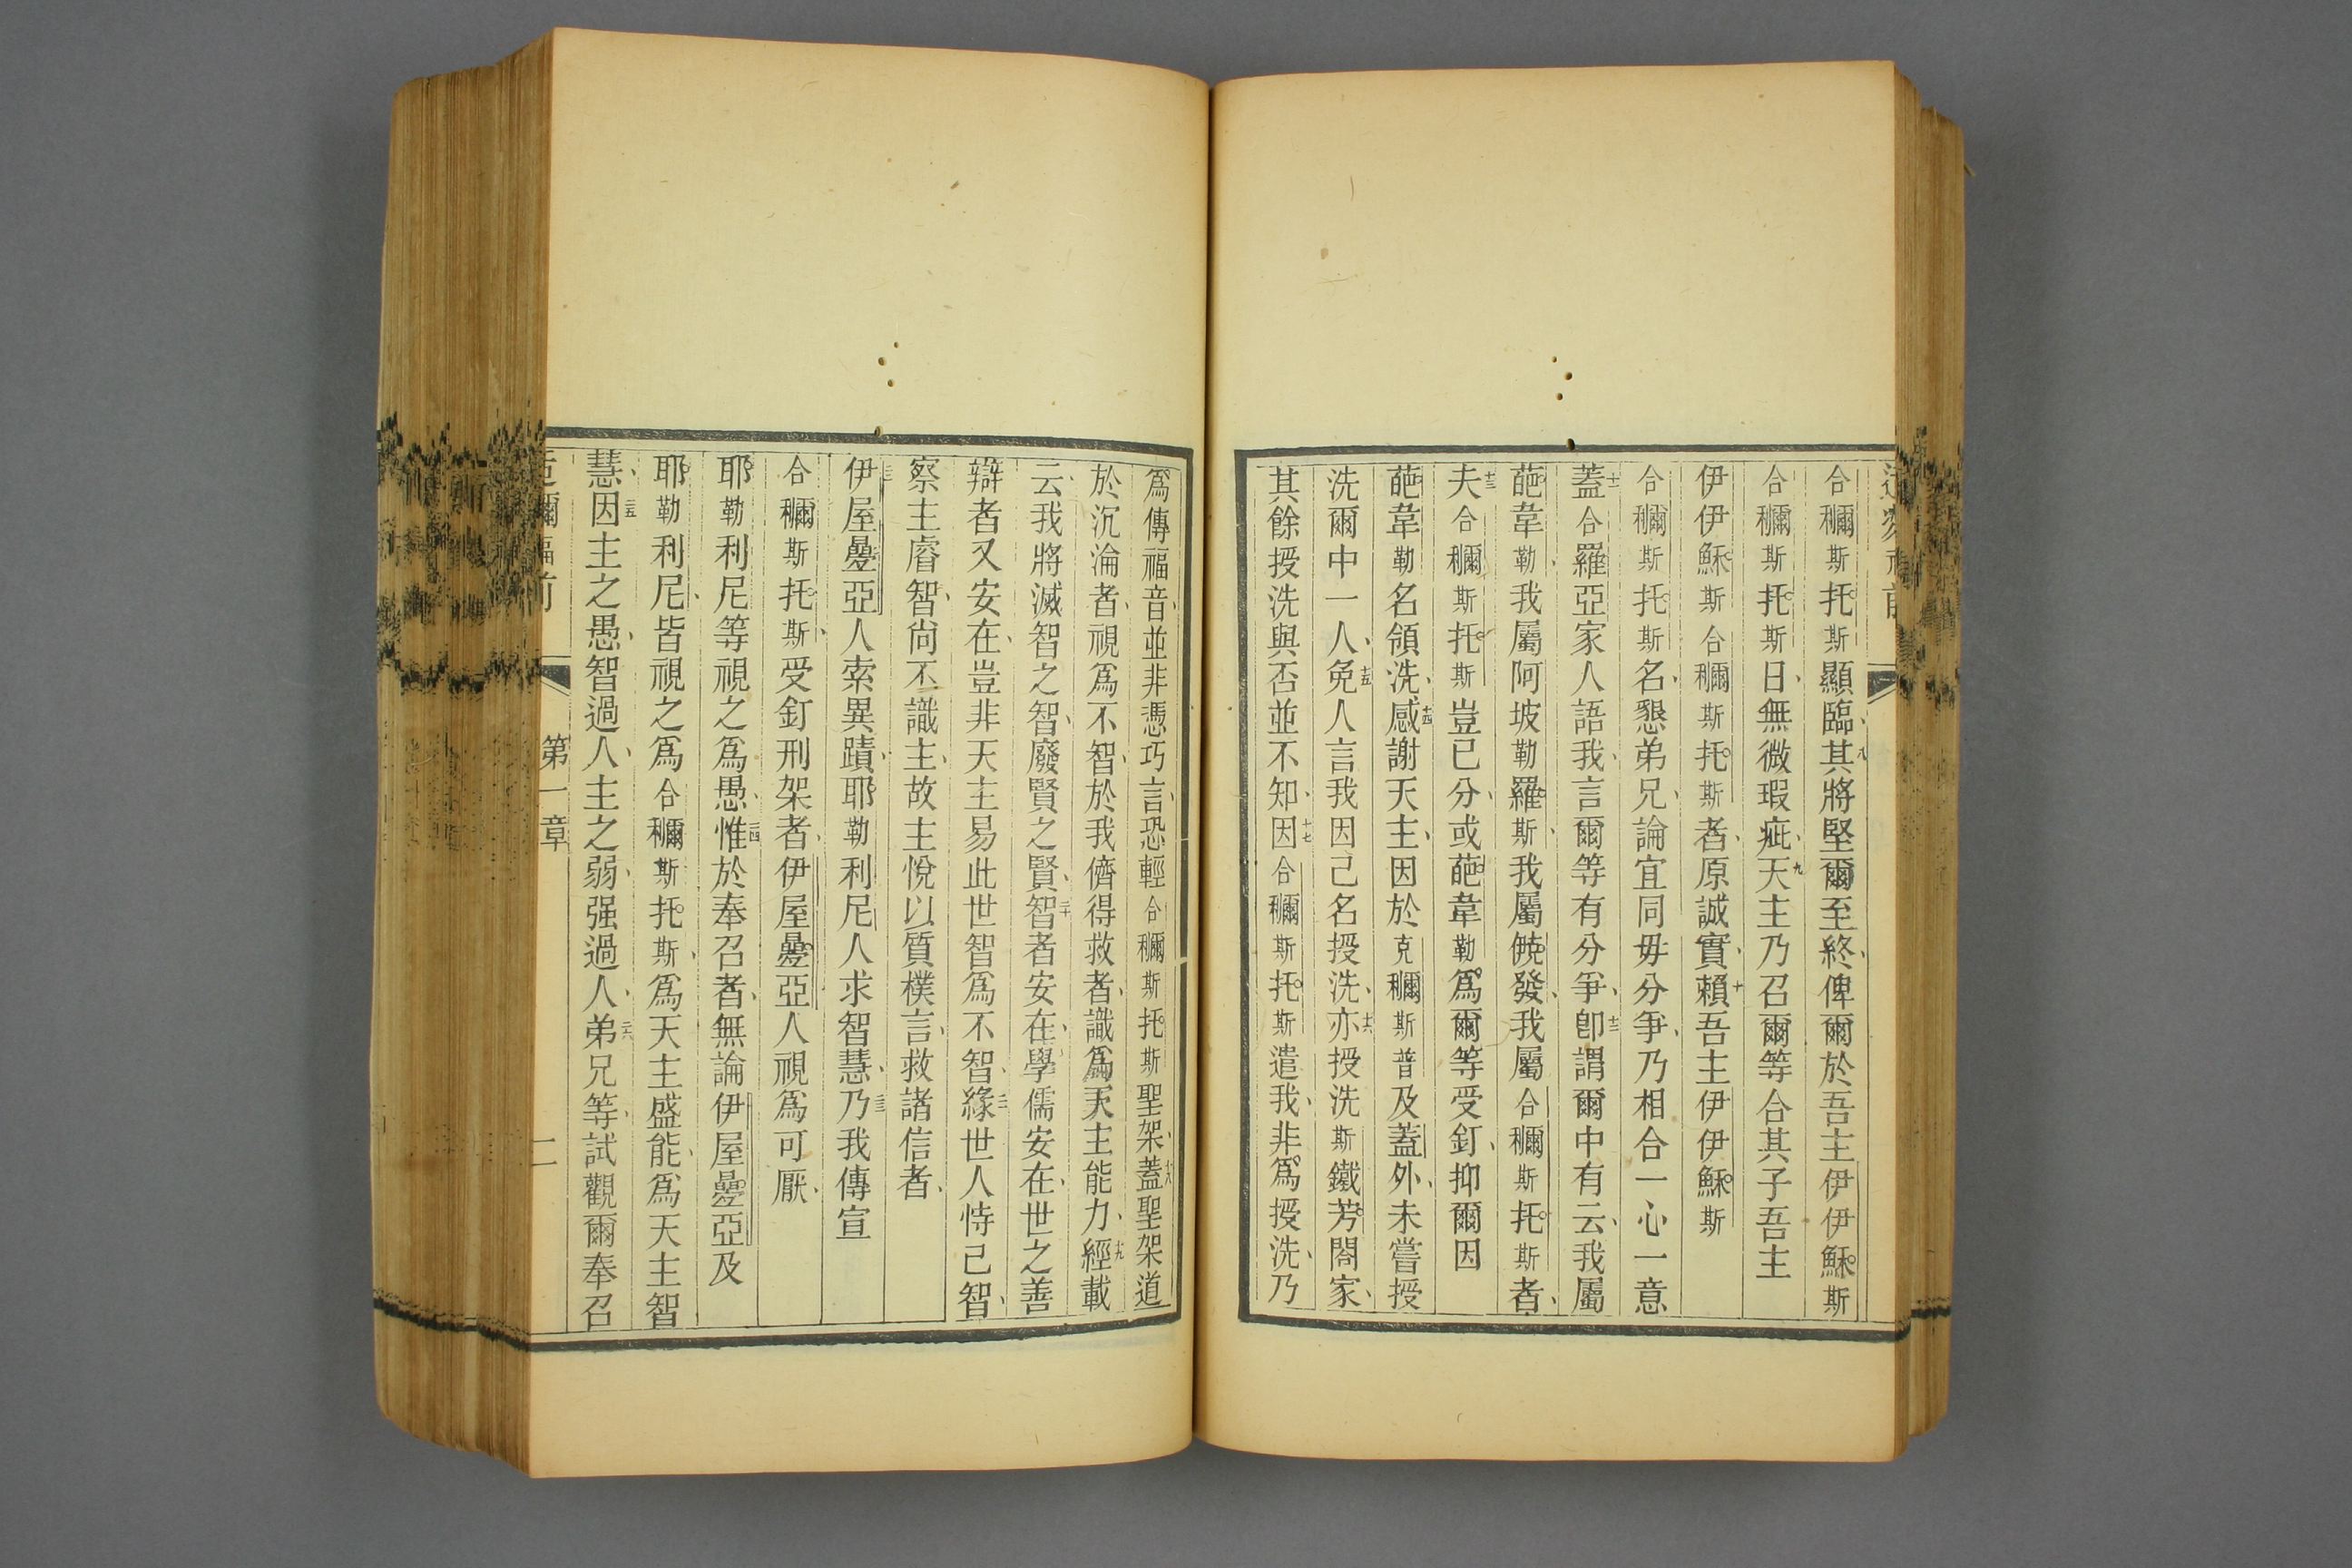 合穪斯托斯顯臨其八將堅爾至終俾爾於吾主伊伊穌斯
合穪斯托斯日無微瑕疵天九主乃召爾等合其子吾主
伊伊穌斯合穪斯托斯者原誠實賴十吾主伊伊穌斯
合穪斯托斯名懇弟兄論宜同毋分爭乃相合一心一意
蓋十一合羅亞家人語我言爾等有分爭卽十二謂爾中有云我屬
葩韋勒我屬阿坡勒羅斯我屬發我屬合穪斯托斯者
夫十三合穪斯托斯豈已分或葩韋勒爲爾等受釘抑爾因
葩韋勒名領洗感十四謝天主因於克穪斯普及蓋外未嘗授
洗爾中一人免十五人言我因己名授洗亦十六授洗斯鐵芳閣家
其餘授洗與否並不知因十七合穪斯托斯遣我非爲授洗乃
爲傳福音並非憑巧言恐輕合穪斯托斯聖架蓋十八聖架道
於沉淪者視爲不智於我儕得救者識爲天主能力經十九載
云我將滅智之智廢賢之賢智二十者安在學儒安在世之善
辯者又安在豈非天主易此世智爲不智緣二一世人恃己智
察主睿智尙不識主故主悅以質樸言救諸信者
伊二二屋疉亞人索異蹟耶勒利尼人求智慧乃二三我傳宣
合穪斯托斯受釘刑架者伊屋疉亞人視爲可厭
耶勒利尼等視之爲愚惟二四於奉召者無論伊屋疉亞及
耶勒利尼皆視之爲合穪斯托斯爲天主盛能爲天主智
慧因二五主之愚智過人主之弱强過人弟二六兄等試觀爾奉召
第一章
二